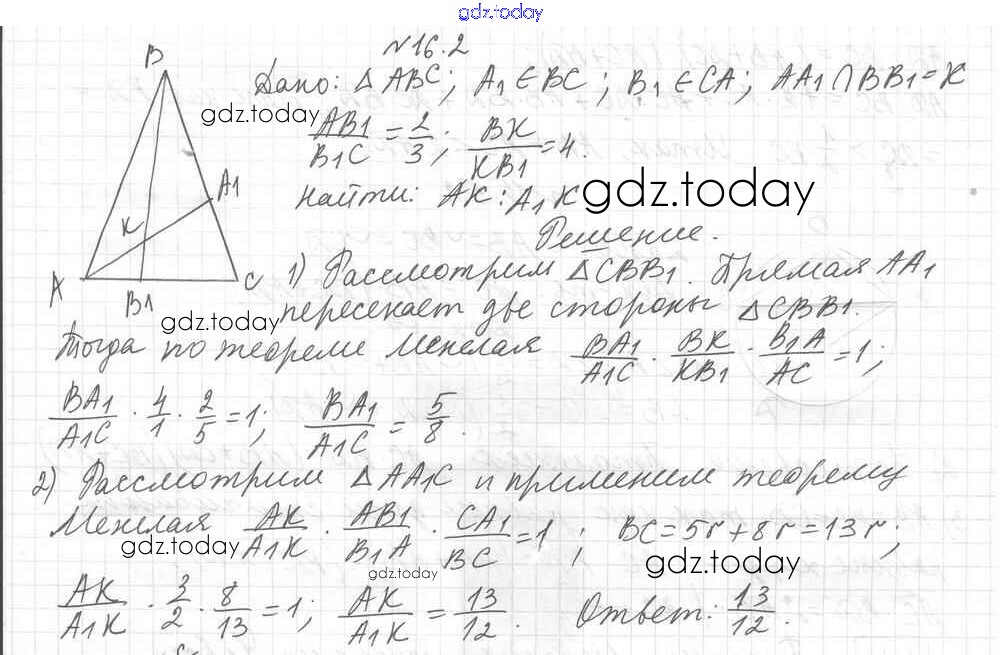 gdz.today
№16.2
Дано: △ABC; A₁∈BC; B₁∈CA; AA₁∩BB₁=K
gdz.today
AB₁/B₁C = 2/3; BK/KB₁ = 4.
Найти: AK:A₁K gdz.today
Решение.
B
A₁
K
A
B₁
C
1) Рассмотрим △CBB₁. Прямая AA₁
пересекает две стороны △CBB₁.
gdz.today
Тогда по теореме Менелая BA₁/A₁C · BK/KB₁ · B₁A/AC = 1;
BA₁/A₁C · 4/1 · 2/5 = 1; BA₁/A₁C = 5/8.
2) Рассмотрим △AA₁C и применим теорему
Менелая AK/A₁K · AB₁/B₁A · CA₁/BC = 1; BC = 5r + 8r = 13r;
gdz.today gdz.today gdz.today
AK/A₁K · 3/2 · 8/13 = 1; AK/A₁K = 13/12. Ответ: 13/12.